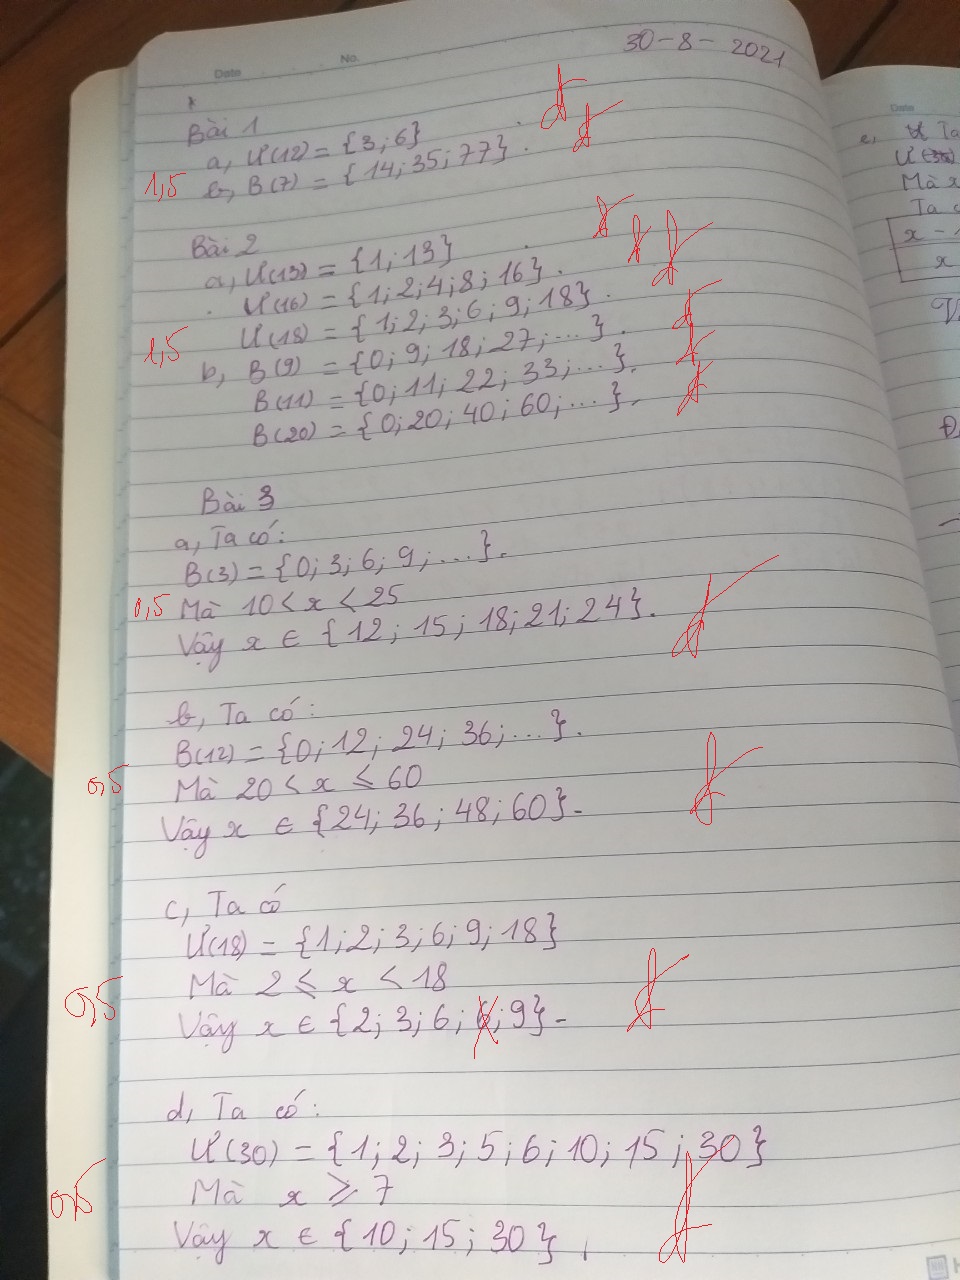 30-8-2021
Date
No.
Bài 1
a, Ư(12) = {3; 6}
1,5
b, B(7) = {14; 35; 77}.
Bài 2
a, Ư(13) = {1; 13}
Ư(16) = {1; 2; 4; 8; 16}.
Ư(18) = {1; 2; 3; 6; 9; 18}.
1,5
b, B(9) = {0; 9; 18; 27; ...}.
B(11) = {0; 11; 22; 33; ...}.
B(20) = {0; 20; 40; 60; ...}.
Bài 3
a, Ta có:
B(3) = {0; 3; 6; 9; ...}.
0,5 Mà 10 < x < 25
Vậy x ∈ {12; 15; 18; 21; 24}.
b, Ta có:
B(12) = {0; 12; 24; 36; ...}.
0,5 Mà 20 < x ≤ 60
Vậy x ∈ {24; 36; 48; 60}.
c, Ta có
Ư(18) = {1; 2; 3; 6; 9; 18}
Mà 2 ≤ x < 18
0,5 Vậy x ∈ {2; 3; 6; 9}.
d, Ta có:
Ư(30) = {1; 2; 3; 5; 6; 10; 15; 30}
0,5 Mà x ≥ 7
Vậy x ∈ {10; 15; 30}.
Date
e, Ta
Mà x
Ta c
x - 1
x